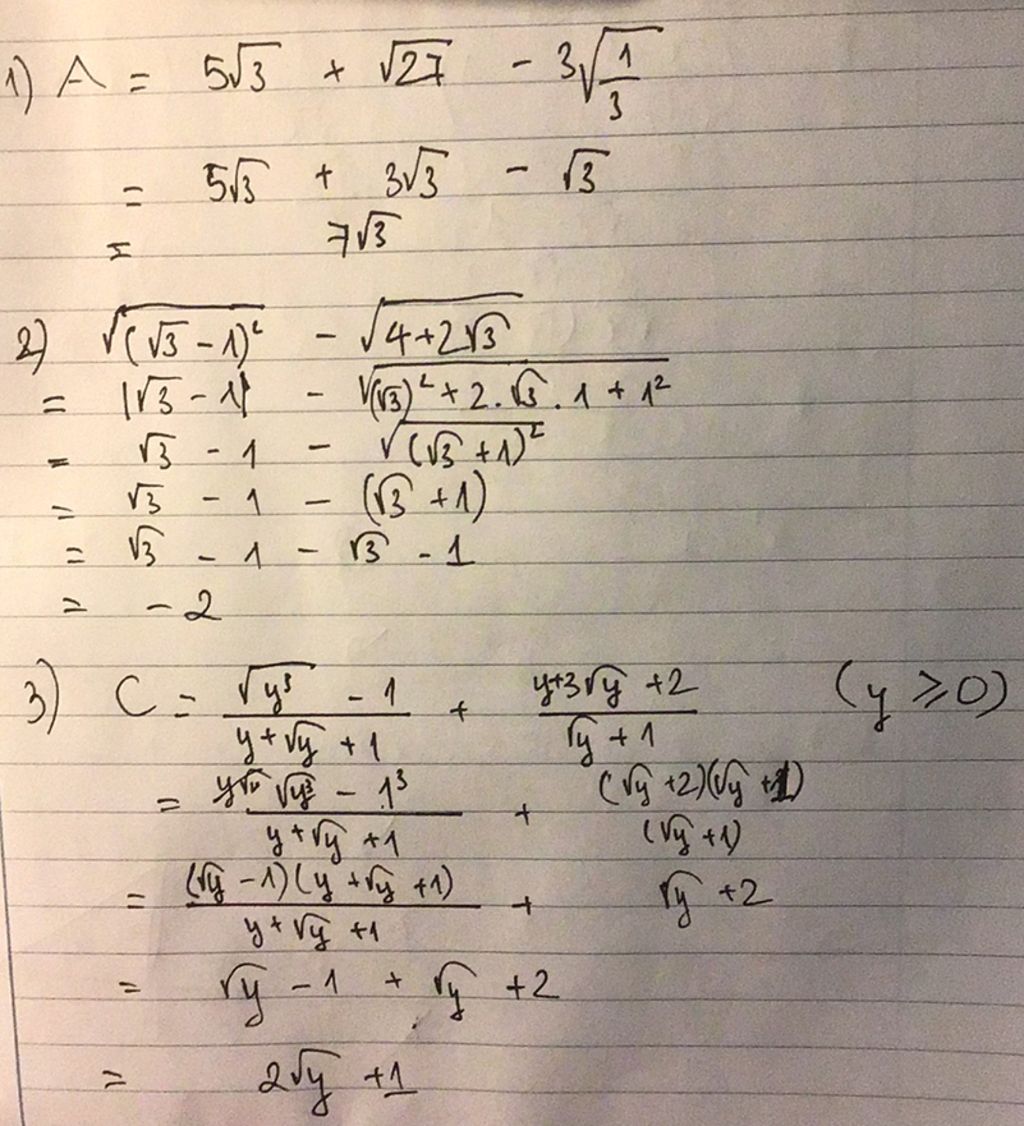 1) A = 5√3 + √27 - 3√(1/3)
= 5√3 + 3√3 - √3
= 7√3
2) √((√3 - 1)²) - √(4+2√3)
= |√3 - 1| - √((√3)² + 2.√3.1 + 1²)
= √3 - 1 - √((√3 + 1)²)
= √3 - 1 - (√3 + 1)
= √3 - 1 - √3 - 1
= -2
3) C = (√y³ - 1)/(y + √y + 1) + (y+3√y + 2)/(√y + 1) (y ≥ 0)
= (√y³ - 1³)/(y + √y + 1) + (√y + 2)(√y + 1)/(√y + 1)
= (√y - 1)(y + √y + 1)/(y + √y + 1) + √y + 2
= √y - 1 + √y + 2
= 2√y + 1